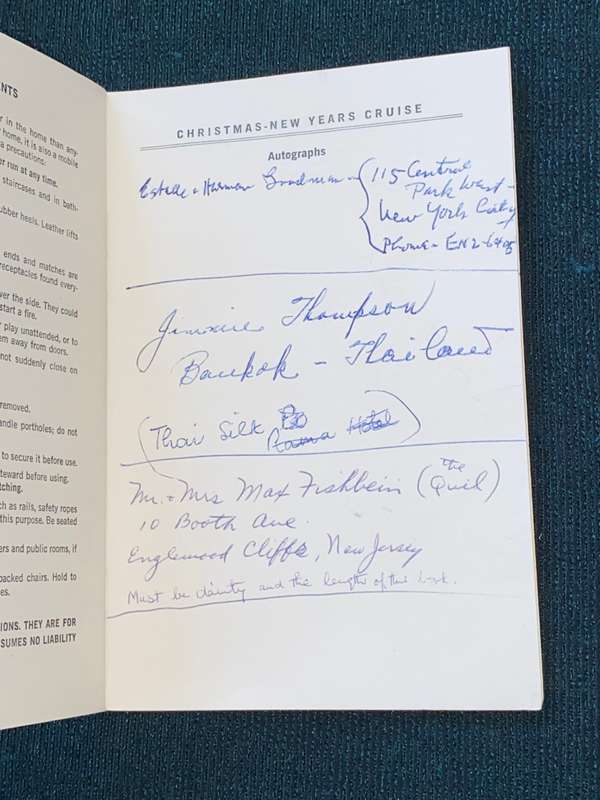 NTS
r in the home than any-
home, it is also a mobile
a precautions.
r run at any time.
staircases and in bath-
ubber heels. Leather lifts
ends and matches are
receptacles found every-
ver the side. They could
start a fire.
r play unattended, or to
em away from doors.
not suddenly close on
removed.
andle portholes; do not
to secure it before use.
teward before using.
tching.
ch as rails, safety ropes
this purpose. Be seated
ers and public rooms, if
packed chairs. Hold to
es.
IONS. THEY ARE FOR
SUMES NO LIABILITY
CHRISTMAS-NEW YEARS CRUISE
Autographs
Estelle & Herman Goodman - 115 Central
Park West -
New York City
Phone - EN2-6405
Jimmie Thompson
Bankok - Thailand
(Thai Silk Hotel)
Mr. & Mrs Max Fishbein (the Quil)
10 Booth Ave.
Englewood Cliffs, New Jersey
Must be dainty and the length of the